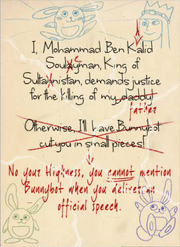 I, Mohammad Ben Kalid
Soulayman, King of
demands justice
for the killing of my daddy
father
Otherwise, I'll have Bunnybot
cut you in small pieces!
No your Highness, you cannot mention
Bunnybot when you deliver an
official speech.